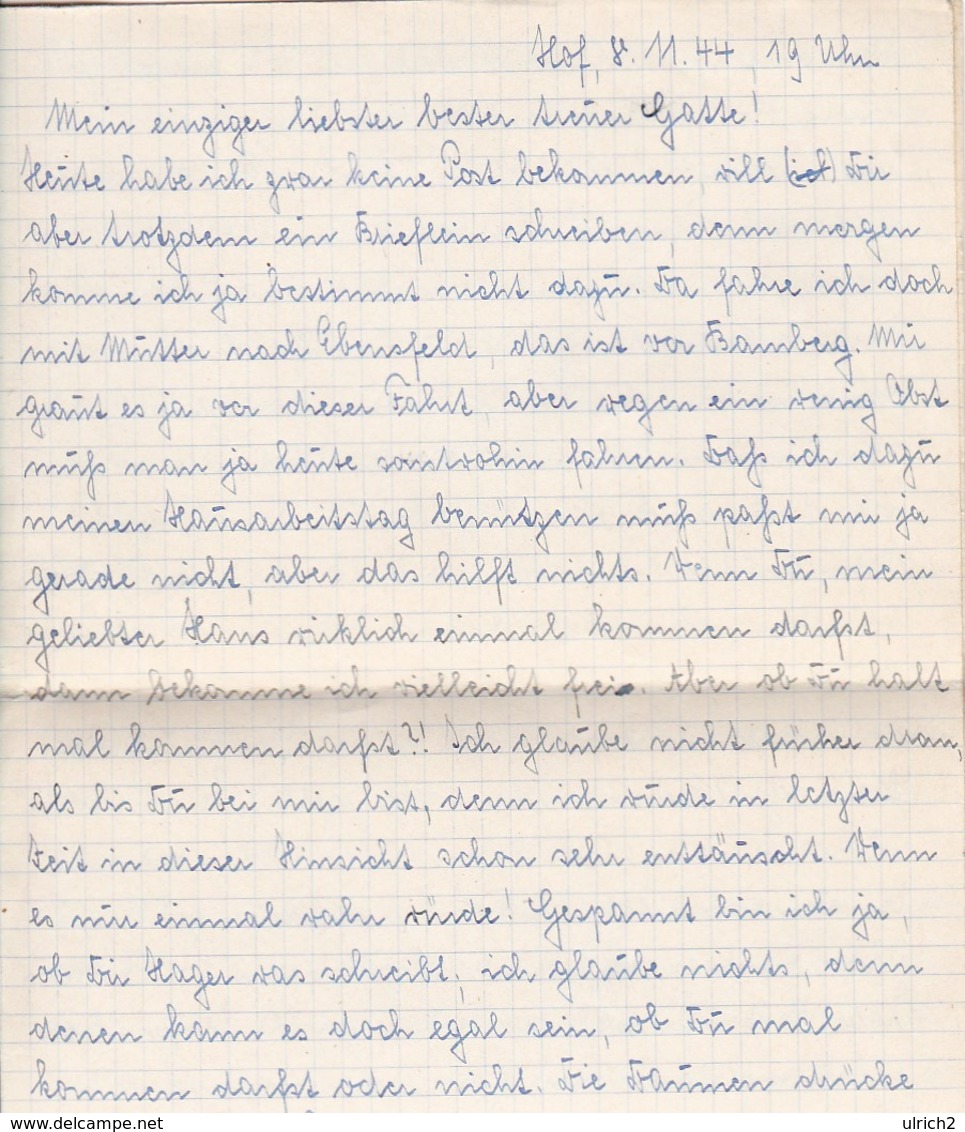 Hof, 8. 11. 44, 19 Uhr
Mein einziger liebster bester treuer Gatte!
Heute habe ich zwar keine Post bekommen, will (ich) Dir
aber trotzdem ein Brieflein schreiben, denn morgen
komme ich ja bestimmt nicht dazu. Da fahre ich doch
mit Mutter nach Ebensfeld, das ist vor Bamberg. Mir
graut es ja vor dieser Fahrt, aber wegen ein wenig Obst
muß man ja heute sontwohin fahren. Daß ich dazu
meinen Hausarbeitstag benützen muß paßt mir ja
gerade nicht, aber das hilft nichts. Wenn Du, mein
geliebter Hans wirklich einmal kommen darfst,
dann bekomme ich vielleicht frei. Aber ob Du halt
mal kommen darfst?! Ich glaube nicht früher dran,
als bis Du bei mir bist, denn ich wurde in letzter
Zeit in dieser Hinsicht schon sehr enttäuscht. Wenn
es nur einmal wahr würde! Gespannt bin ich ja,
ob Dir Hager was schreibt, ich glaube nichts, denn
denen kann es doch egal sein, ob Du mal
kommen darfst oder nicht. Die Daumen drücke
ulrich2